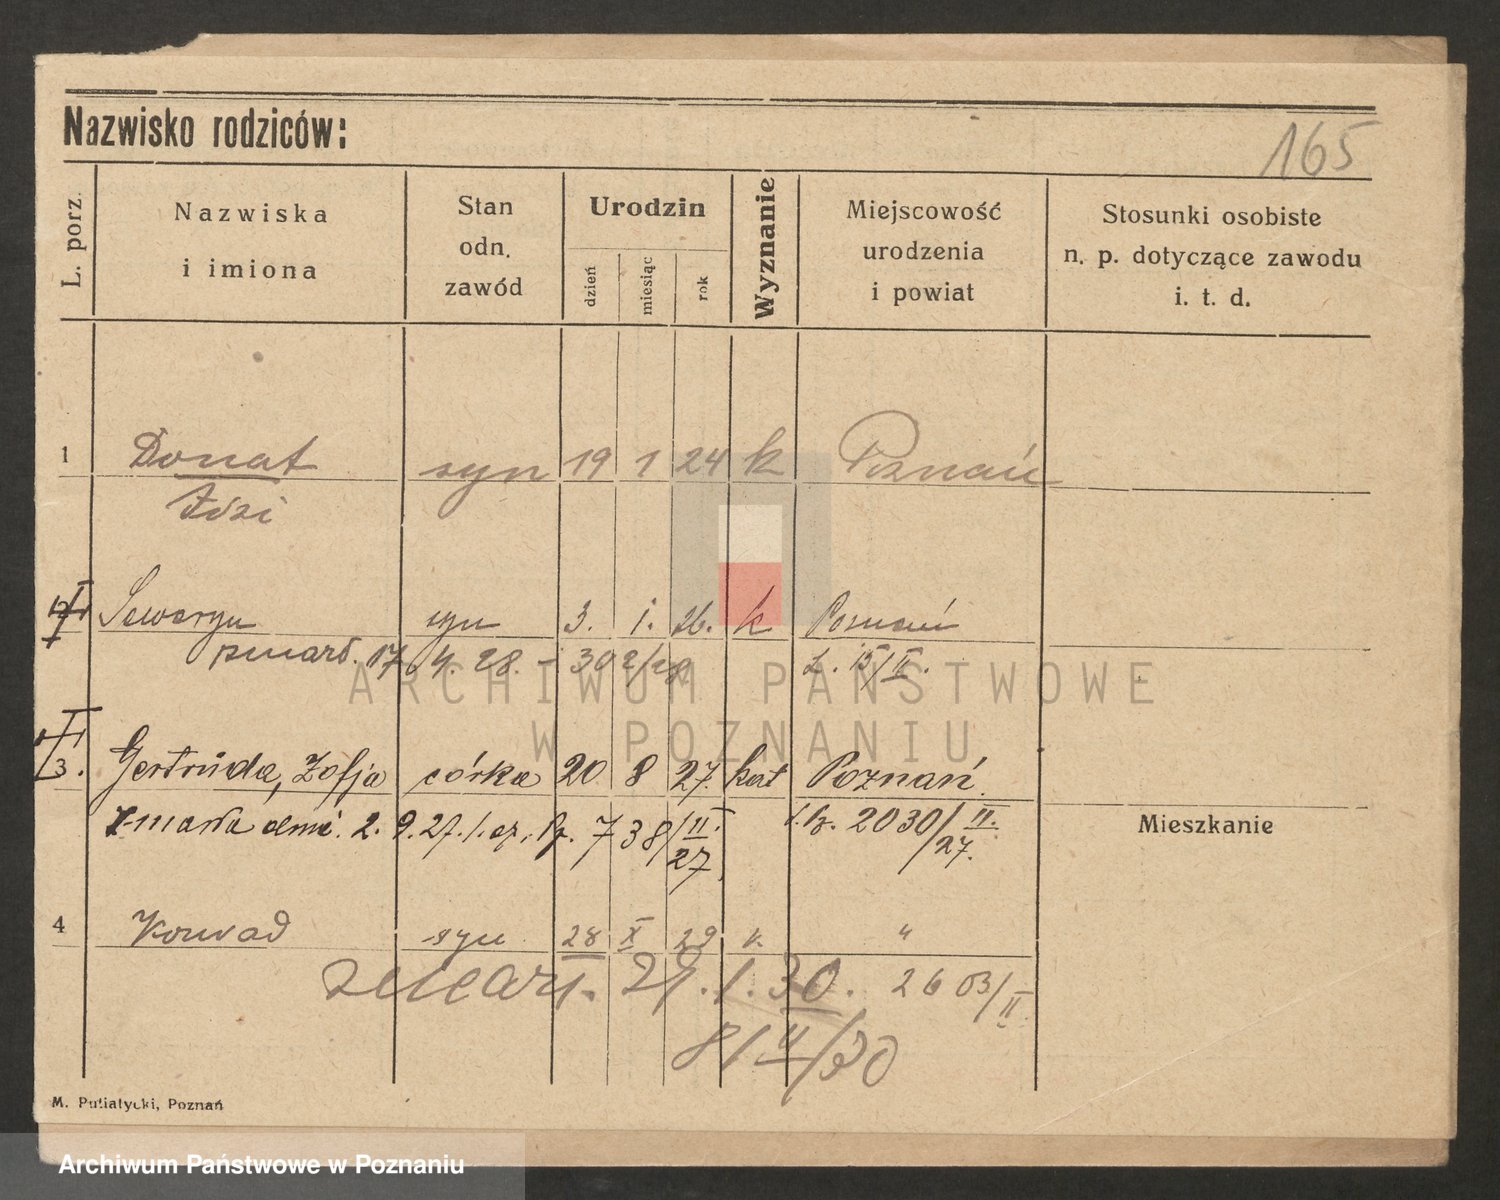 Nazwisko rodziców:
165
L. porz.
Nazwiska
i imiona
Stan
odn.
zawód
Urodzin
dzień
miesiąc
rok
Wyznanie
Miejscowość
urodzenia
i powiat
Stosunki osobiste
n. p. dotyczące zawodu
i. t. d.
1 Donat syn 19 1 24 k Poznań
Idzi
Seweryn syn 3. 1. 26. k Poznań
zmarł. 17. 4. 28. - 302/28 L. 15/II.
3. Gertruda, Zofja córka 20 8 27. kat Poznań.
Zmarła dnia. 2. 9. 27. 738/II. 2030/II.
27 27.
Mieszkanie
4 Konrad syn 28 X 29 k. "
zmarł. 29. 1. 30. 2603/II
81/II/30
M. Putiatycki, Poznań
ARCHIWUM PAŃSTWOWE
W POZNANIU
Archiwum Państwowe w Poznaniu